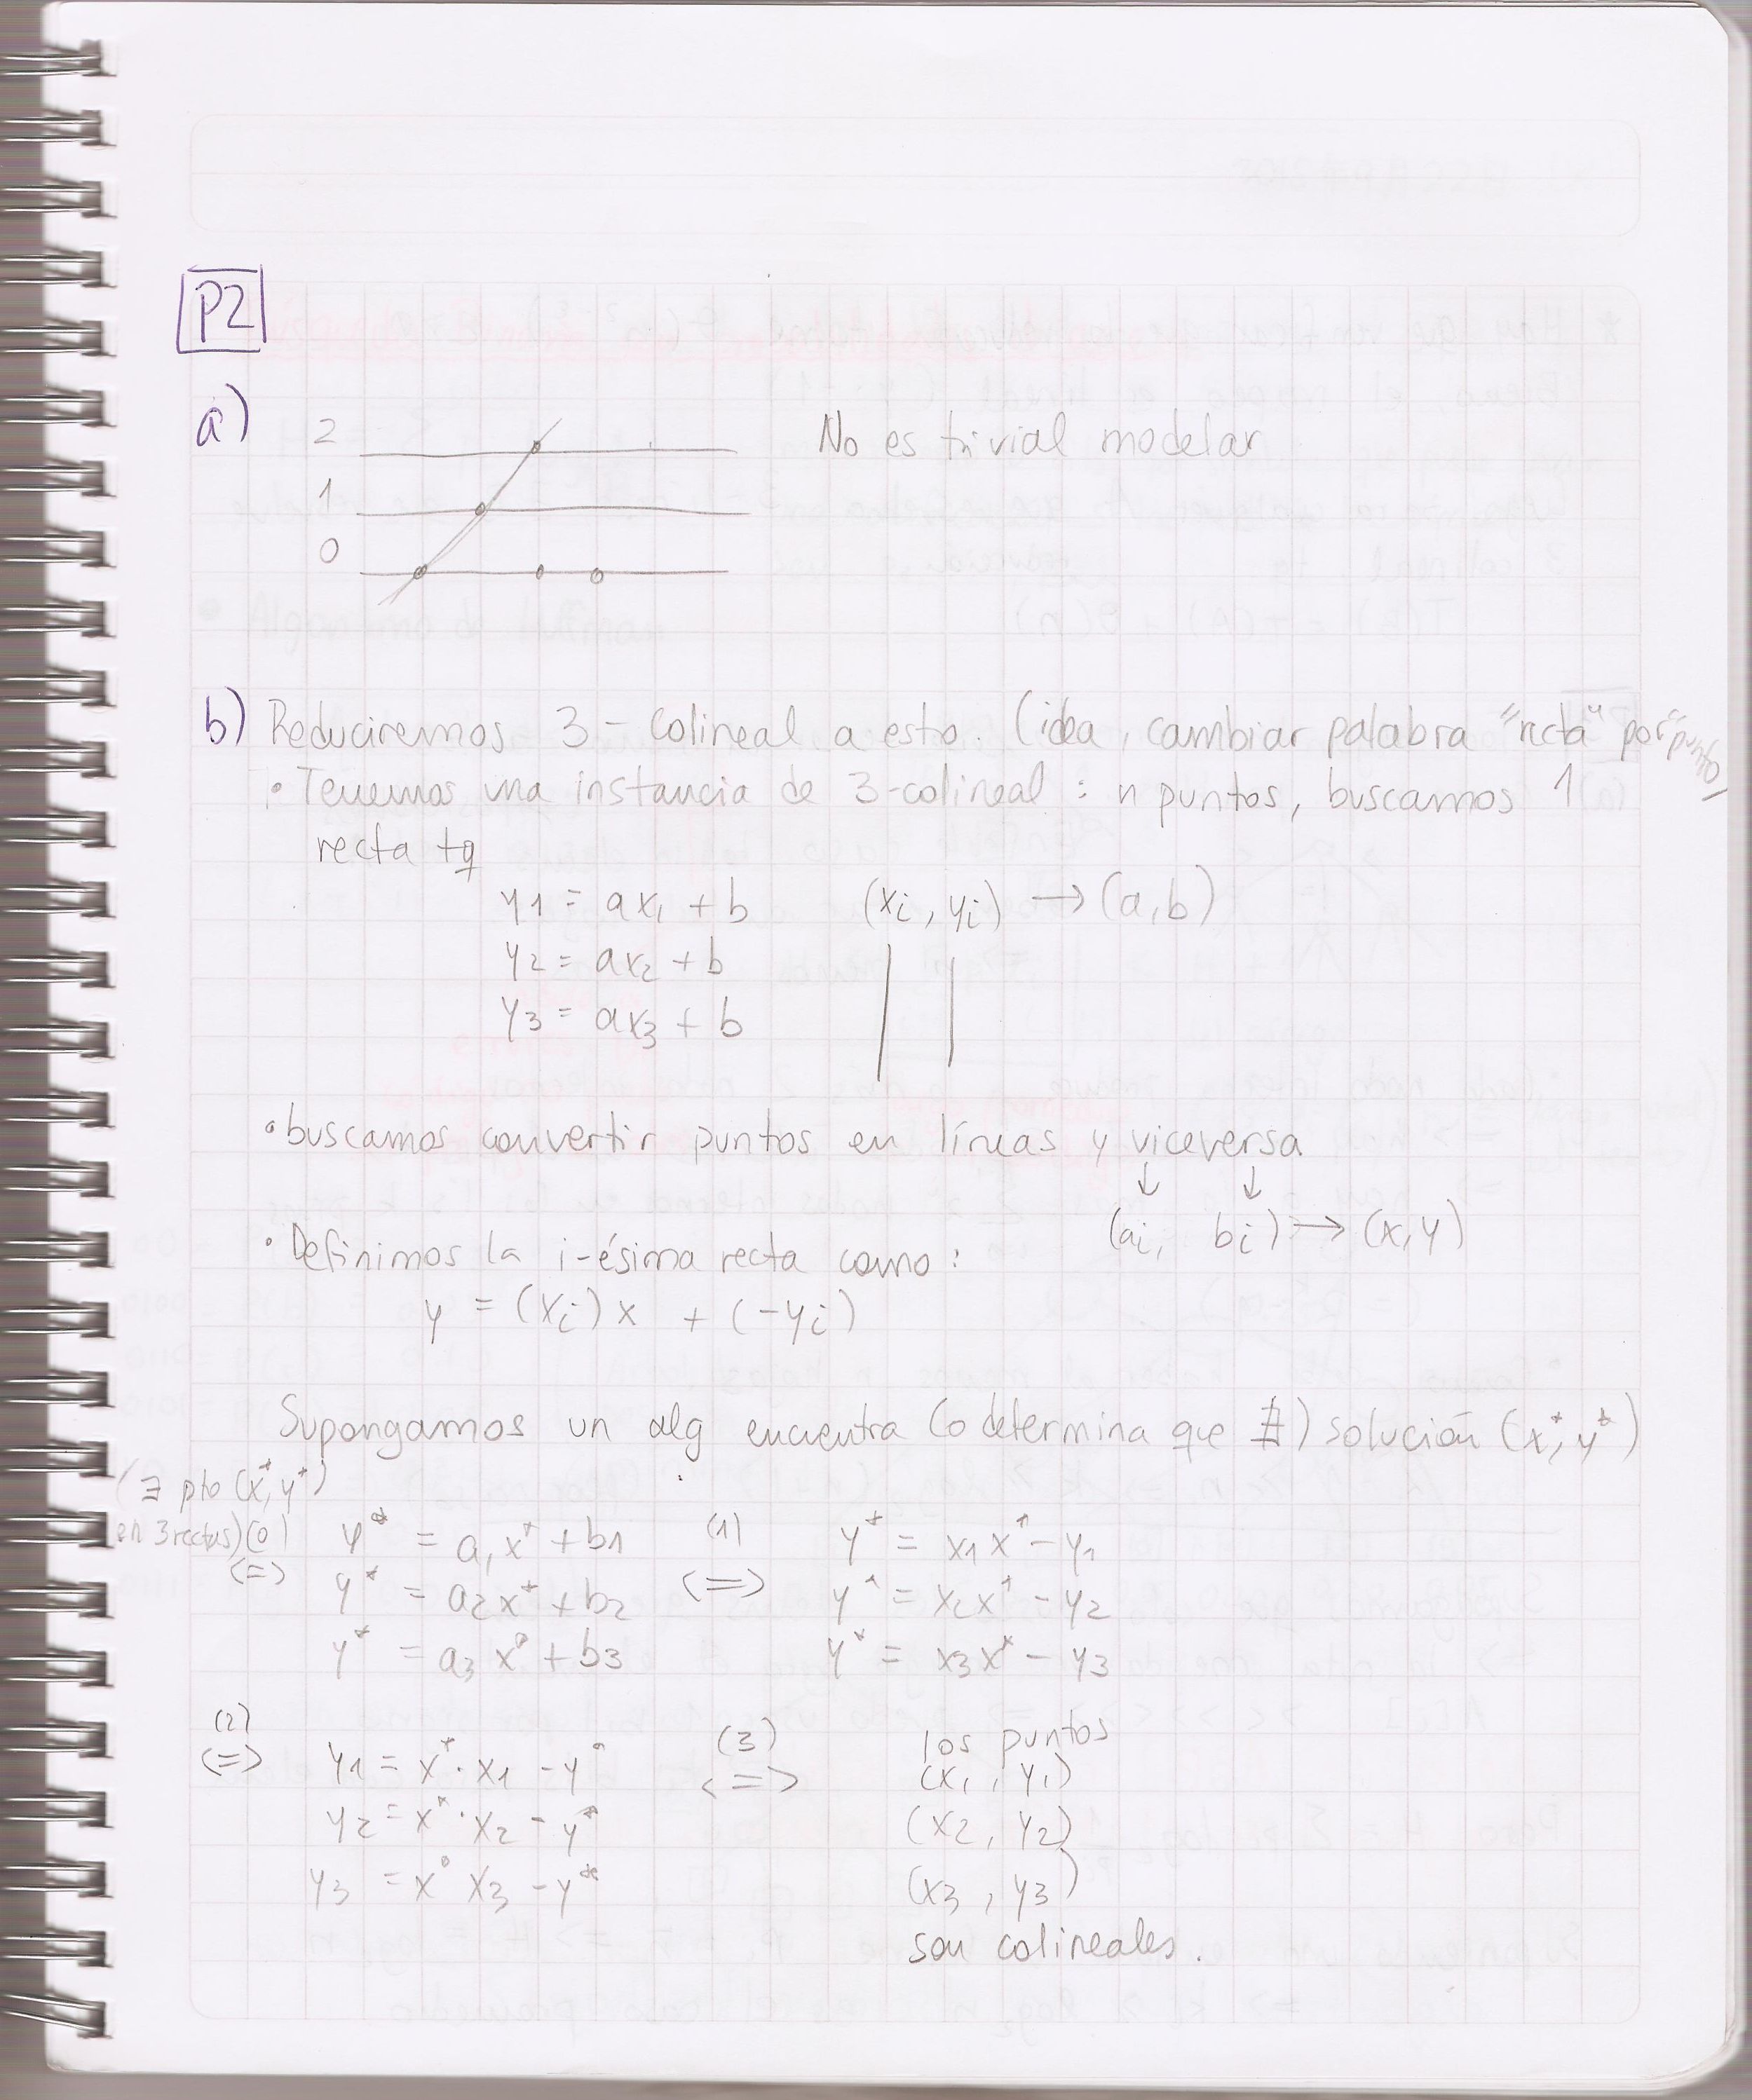 P2
a)
2
1
0
No es trivial modelar
b) Reduciremos 3-colineal a esto. (idea, cambiar palabra "recta" por "punto")
• Tenemos una instancia de 3-colineal : n puntos, buscamos 1
recta tq
y1 = ax1 + b (xi, yi) → (a,b)
y2 = ax2 + b
y3 = ax3 + b
• buscamos convertir puntos en líneas y viceversa
↓ ↓
(ai, bi) → (x,y)
• Definimos la i-ésima recta como:
y = (xi)x + (-yi)
Supongamos un alg encuentra (o determina que ∄) solución (x*, y*)
(∃ pto (x*, y*)
en 3 rectas) (0) <=>
y* = a1 x* + b1 (1) y* = x1 x* - y1
y* = a2 x* + b2 <=> y* = x2 x* - y2
y* = a3 x* + b3 y* = x3 x* - y3
(2) (3) los puntos
<=> y1 = x* · x1 - y* <=> (x1, y1)
y2 = x* · x2 - y* (x2, y2)
y3 = x* x3 - y* (x3, y3)
son colineales.